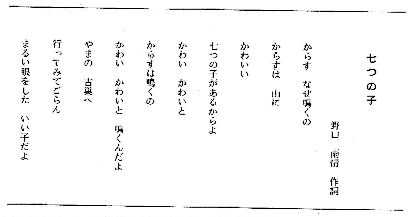 七つの子
野口 雨情 作詞
からす なぜ鳴くの
からすは 山に
かわいい
七つの子があるからよ
かわい かわいと
からすは鳴くの
かわい かわいと 鳴くんだよ
やまの 古巣へ
行ってみてごらん
まるい眼をした いい子だよ